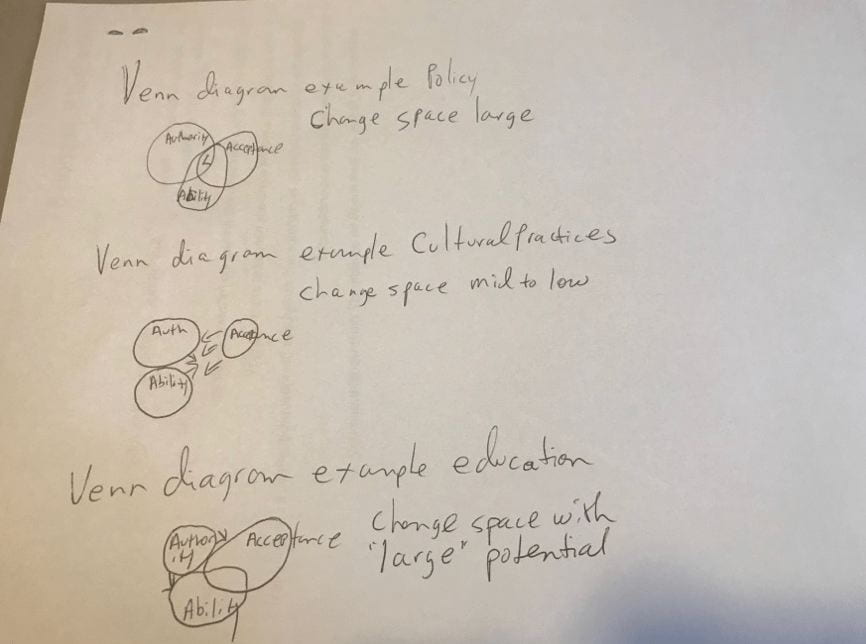 Venn diagram example Policy
change space large
Authority
Acceptance
Ability
Venn diagram example Cultural Practices
change space mid to low
Auth
Acceptance
Ability
Venn diagram example education
change space with
"large" potential
Authority
Acceptance
Ability